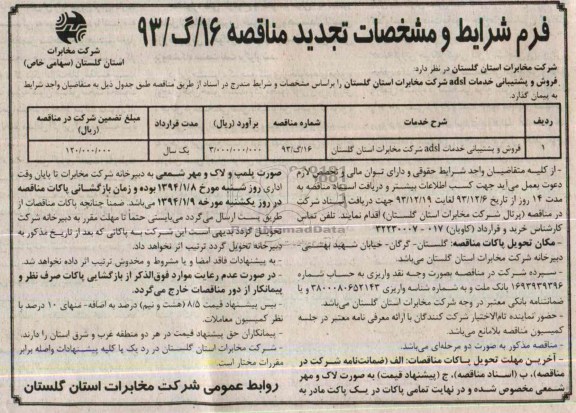 فرم شرایط و مشخصات تجدید مناقصه ۱۶/گ/۹۳
شرکت مخابرات
استان گلستان (سهامی خاص)
شرکت مخابرات استان گلستان در نظر دارد:
فروش و پشتیبانی خدمات adsl شرکت مخابرات استان گلستان را براساس مشخصات و شرایط مندرج در اسناد از طریق مناقصه طبق جدول ذیل به متقاضیان واجد شرایط
به پیمان گذارد.
ردیف شرح خدمات شماره مناقصه برآورد (ریال) مدت قرارداد مبلغ تضمین شرکت در مناقصه (ریال)
۱ فروش و پشتیبانی خدمات adsl شرکت مخابرات استان گلستان ۱۶/گ/۹۳ ۳/۰۰۰/۰۰۰/۰۰۰ یک سال ۱۲۰/۰۰۰/۰۰۰
- از کلیه متقاضیان واجد شرایط حقوقی و دارای توان مالی و تخصص لازم
دعوت بعمل می‌آید جهت کسب اطلاعات بیشتر و دریافت اسناد مناقصه به
مدت ۱۴ روز از تاریخ ۹۳/۱۲/۶ لغایت ۹۳/۱۲/۱۹ جهت دریافت اسناد شرکت
در مناقصه (پرتال شرکت مخابرات استان گلستان) اقدام نمایند. تلفن تماس
کارشناس خرید و قرارداد (کاویان) ۰۱۷ - ۳۲۲۳۰۰۰۷
- مکان تحویل پاکات مناقصه: گلستان- گرگان- خیابان شهید بهشتی-
دبیرخانه شرکت مخابرات استان گلستان می‌باشد.
- سپرده شرکت در مناقصه بصورت وجه نقد واریزی به حساب شماره
۱۶۹۳۹۳۹۳۹۶ بانک ملت و به شماره شناسه واریزی ۳۸۰۰۰۸۰۶۵۲۱۴۳ و یا
ضمانتنامه بانکی معتبر در وجه شرکت مخابرات استان گلستان می‌باشد.
- حضور نماینده تام‌الاختیار شرکت کنندگان با ارائه معرفی نامه معتبر در جلسه
کمیسیون مناقصه بلامانع می‌باشد.
- مناقصه مذکور به صورت دو مرحله‌ای می‌باشد.
- آخرین مهلت تحویل پاکات مناقصات: الف (ضمانت‌نامه شرکت در
مناقصه)، ب (اسناد مناقصه)، ج (پیشنهاد قیمت) به صورت لاک و مهر
شمعی مخصوص شده و در نهایت تمامی پاکات در یک پاکت مادر به
صورت پلمپ و لاک و مهر شمعی به دبیرخانه شرکت مخابرات تا پایان وقت
اداری روز شنبه مورخ ۱۳۹۴/۱/۸ بوده و زمان بازگشایی پاکات مناقصه
در روز یکشنبه مورخه ۱۳۹۴/۱/۹ می‌باشد. ضمناً چنانچه پاکات مناقصات از
طریق پست ارسال می‌گردد می‌بایستی حتماً تا مهلت مقرر به دبیرخانه شرکت
تحویل گردد. بدیهی است این شرکت به پاکاتی که بعد از تاریخ مذکور به
دبیرخانه تحویل گردد ترتیب اثر نخواهد داد.
- به پیشنهادات فاقد امضا و یا مشروط و مخدوش ترتیب اثر داده نخواهد شد.
- در صورت عدم رعایت موارد فوق‌الذکر از بازگشایی پاکات صرف نظر و
پیمانکار از دور مناقصات خارج می‌گردد.
- بیس پیشنهاد قیمت ۸/۵ (هشت و نیم) درصد به اضافه- منهای ۱۰ درصد با
نظر کمیسیون معاملات.
- پیمانکاران حق پیشنهاد قیمت در هر دو منطقه غرب و شرق استان را دارند.
- شرکت مخابرات استان گلستان در رد یک یا کلیه پیشنهادات واصله برابر
مقررات مختار است.
روابط عمومی شرکت مخابرات استان گلستان